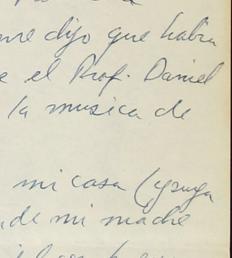 me dijo que habia
e el Prof. Daniel
la musica de
mi casa
de mi madre